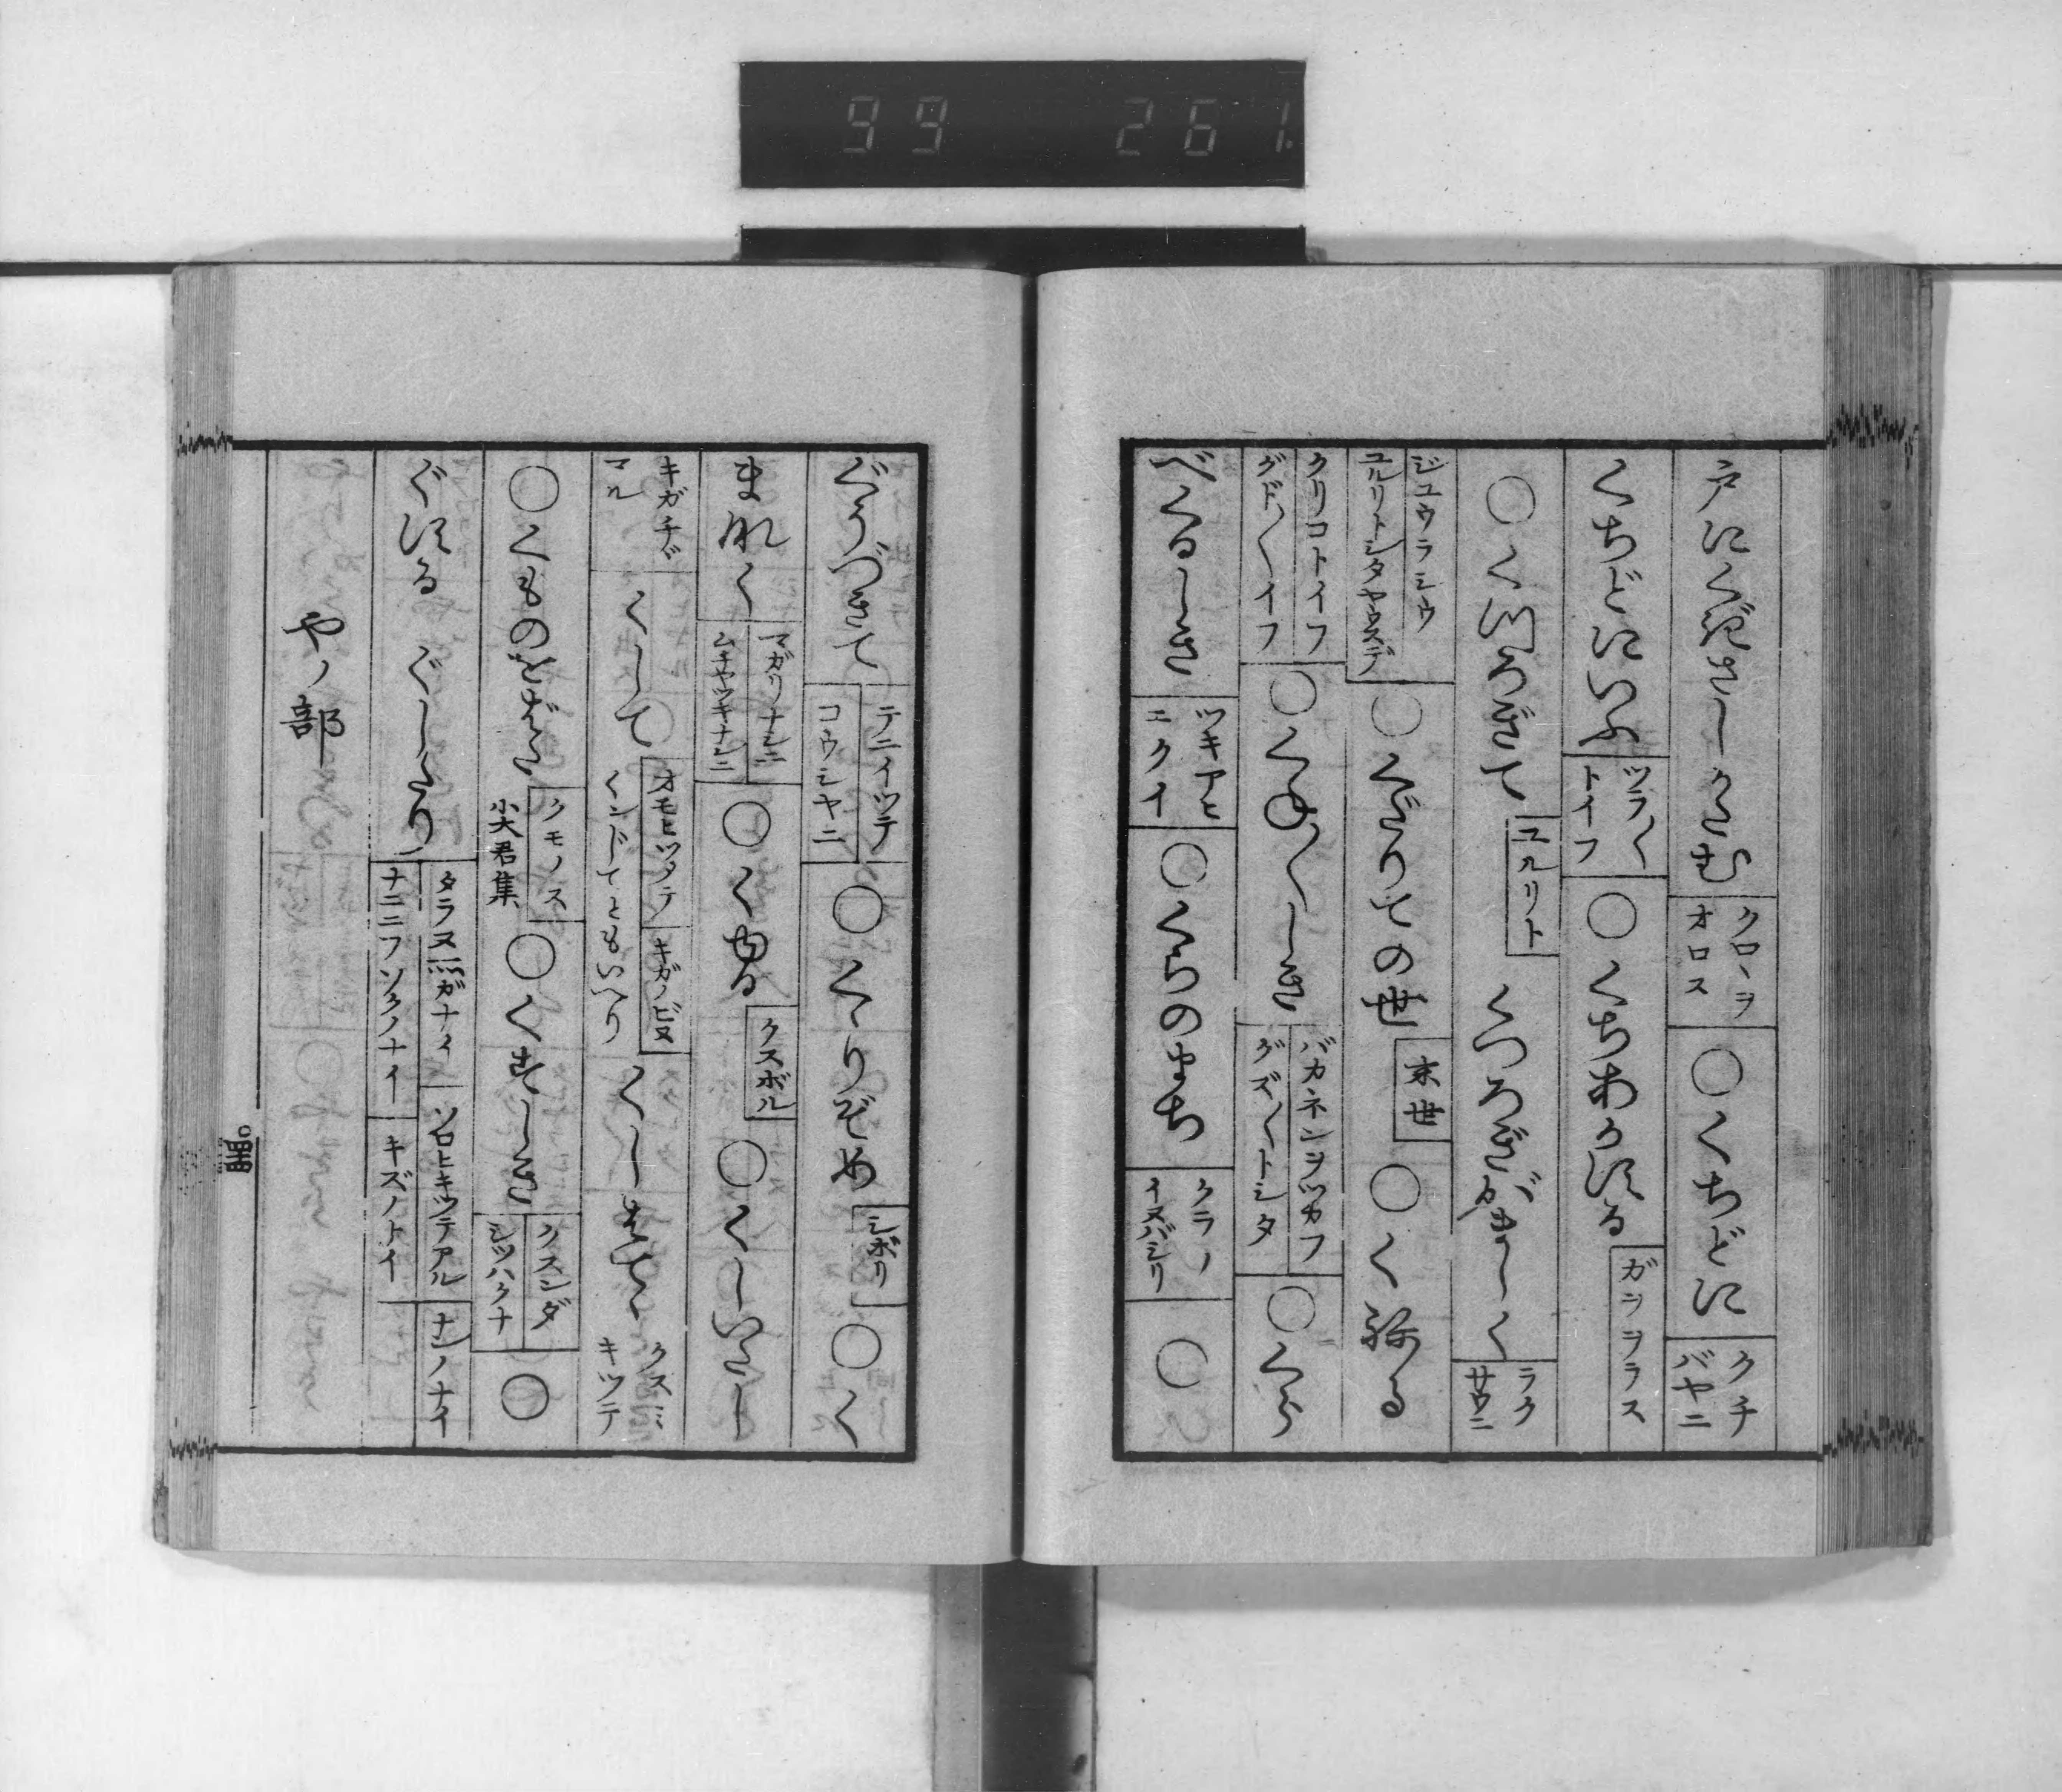 99 261.
戸にくださしかたむ クロヽヲ オロス ○くちどに クチ バヤニ
くちどにいふ ツラ〱 トイフ ○くちわかる ガヲヲラス
○くつろぎて ユルリト くつろぎがましく ラク サウニ
ジユウラシウ ユルリトシタヤウスデ ○くだりての世 末世 ○くねる
クリコトイフ グド〱イフ ○くた〱しき バカネンヲツカフ グズ〱トシタ ○くら
べくるしき ツキアヒ ニクイ ○くらのまち クラノ イヌバシリ ○
ぐうづきて テニイツテ コウシヤニ ○くゝりぞめ シボリ ○く
まれく マガリナシニ ムチヤツキナシニ ○くゆる クスボル ○くしいたし
キガチヾ マル くして オモヒツメテ キガノビヌ くンじてともいへり くしはてゝ クスミ キツテ
○くものすだく クモノス 小大君集 ○くすしき クスンダ シツハクナ ○
ぐする ぐしたり タラヌ㕝ガナイ ナニニフソクノナイ ソロヒキツテアル キズノナイ ナンノナイ
や ノ部
四